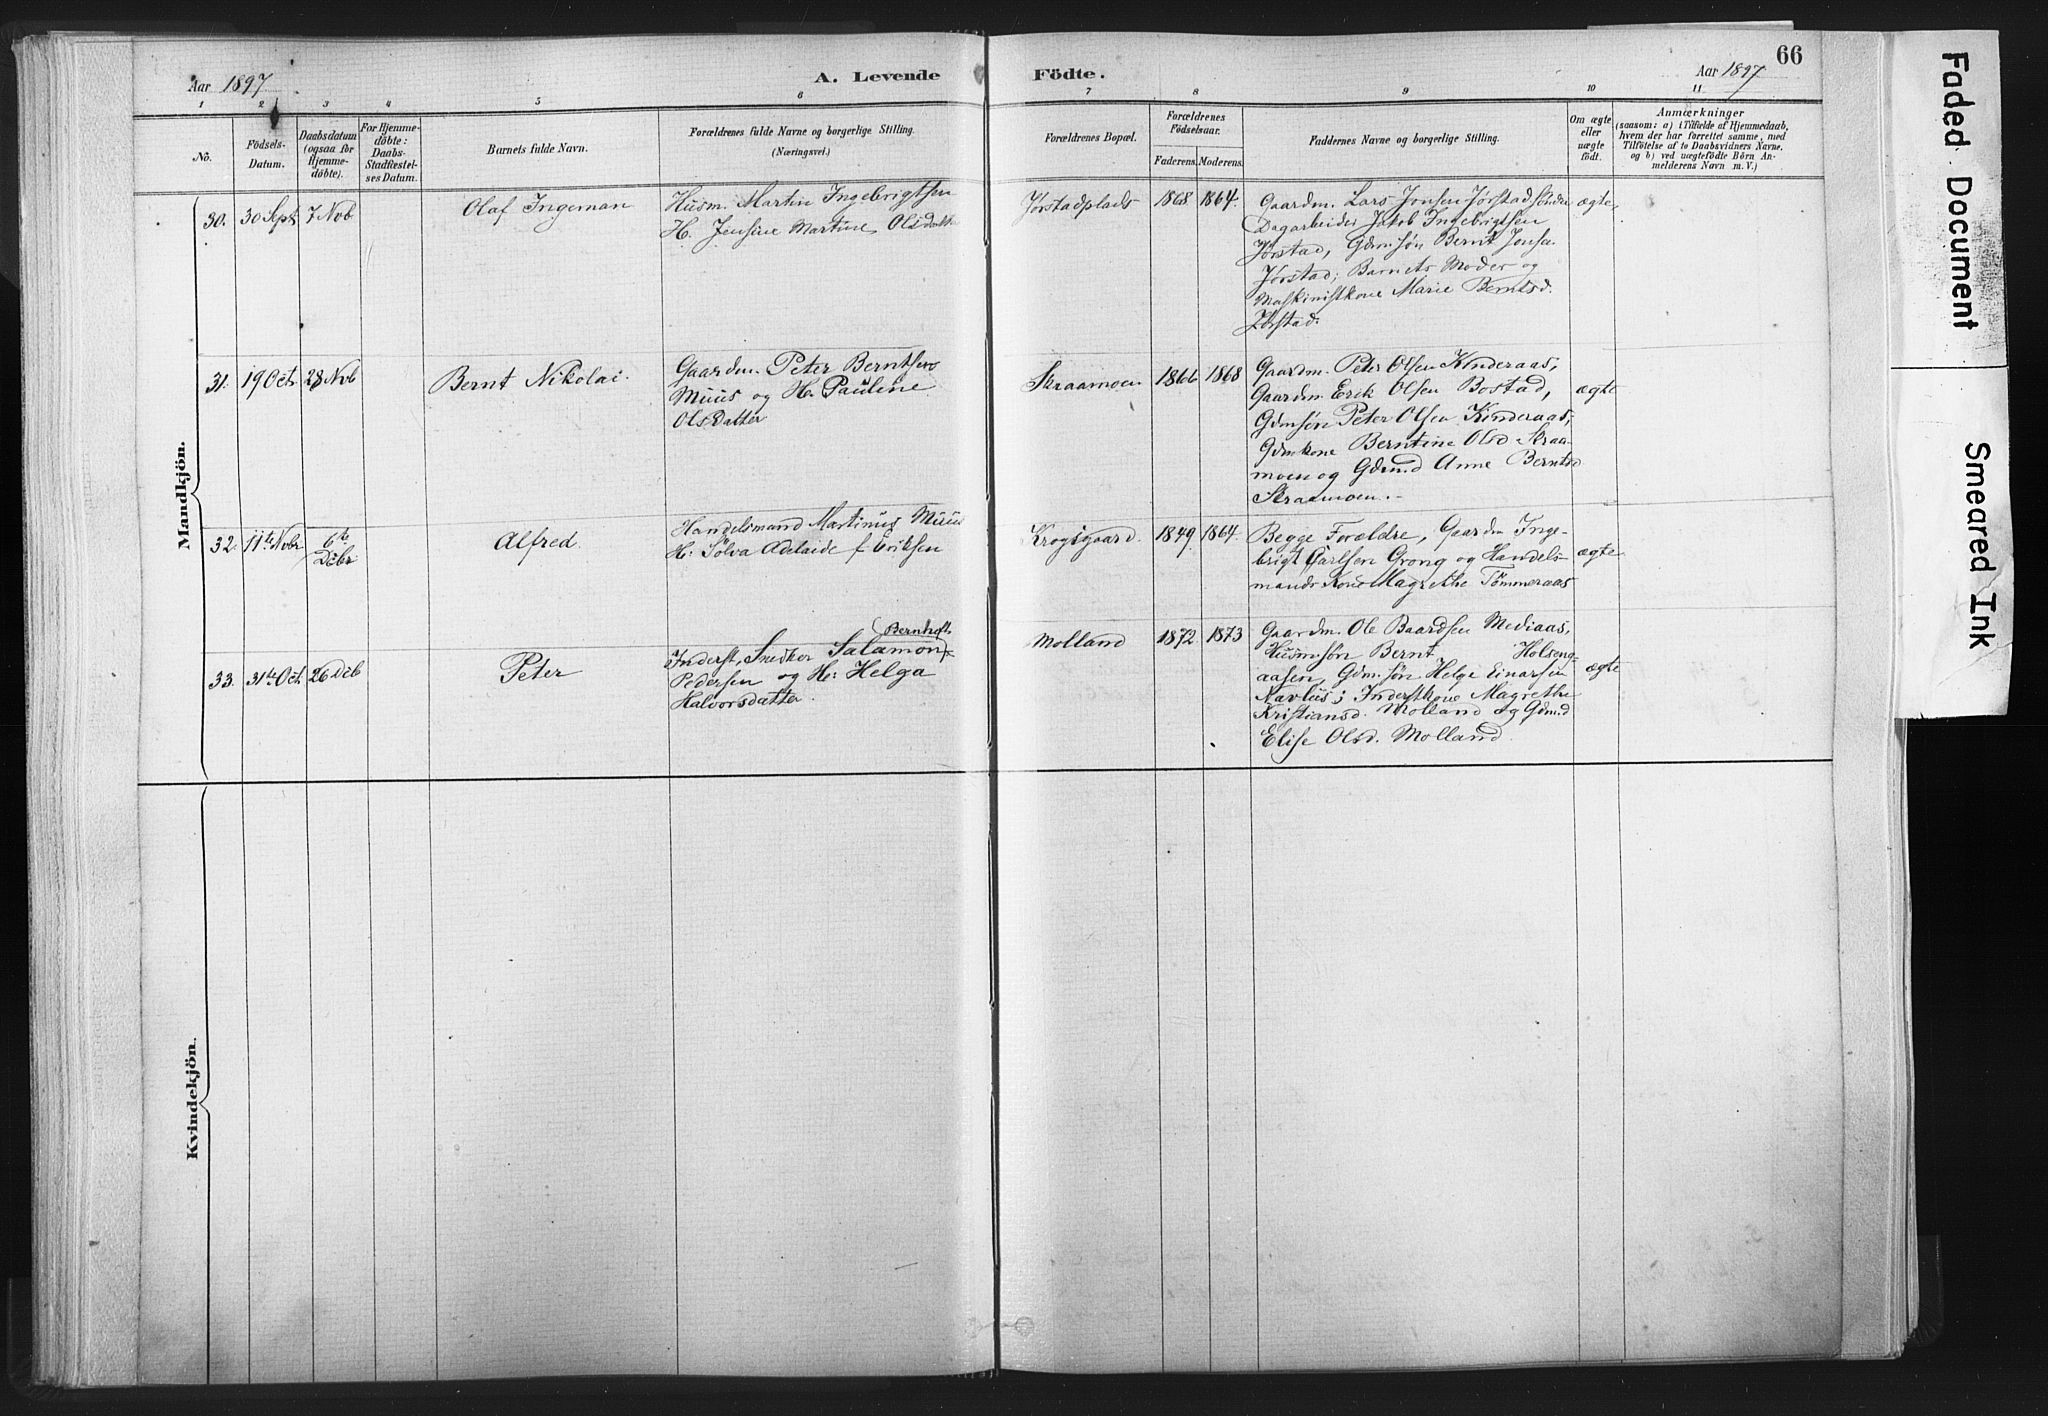 66
Aar 1897
A. Levende
Födte.
Aar 1897
1 2 3 4 5 6 7 8 9 10 11
No.
Födsels-
Datum.
Daabsdatum
(ogsaa for
Hjemme-
döbte).
For Hjemme-
döbte:
Daabs-
Stadfæstel-
ses Datum.
Barnets fulde Navn.
Forældrenes fulde Navne og borgerlige Stilling.
(Næringsvei.)
Forældrenes Bopæl.
Forældrenes
Födselsaar.
Faderens.
Moderens.
Faddernes Navne og borgerlige Stilling.
Om ægte
eller
uægte
født.
Anmærkninger
(saasom: a) i Tilfælde af Hjemmedaab,
hvem der har forrettet samme, med
Tilföielse af to Daabsvidners Navne,
og b) ved uægtefödte Börn An-
melderens Navn m. V.)
Mandkjön.
30.
30 Sept
7 Nvb
Olaf Ingeman
Husm. Martin Ingebrigtsen
H. Jensine Martine Olsdatter
Jørstadplads
1868
1864.
Gaardm. Lars Jonsen Jørstad søndre
Dagarbeider Jakob Ingebrigtsen
Jørstad, Gdmsøn Bernt Jonsen
Jørstad; Barnets Moder og
Maskinistkone Marie Berntsd.
Jørstad.
ægte
31.
19 Oct
28 Nvb
Bernt Nikolai.
Gaardm. Peter Berntsen
Muus og H. Pauline
Olsdatter
Skraamoen
1866
1868
Gaardm. Peter Olsen Kinderaas,
Gaardm Erik Olsen Bostad,
Gdmsøn Peter Olsen Kinderaas;
Gdmkone Berntine Olsd Skraa-
moen og Gdmd Anne Berntsd
Skraamoen.
ægte
32.
11te Nvbr
6te
Dcbr
Alfred.
Handelsmand Martinus Muus
H. Sølva Adelaide f. Eriksen
Krogsgaard.
1849
1864.
Begge Forældre, Gaardm Inge-
brigt Carlsen Grong og Handels-
mands Kone Magrethe Tömmeraas
ægte
33.
31te Oct
26 Dcb
Peter
Bernhoft
Inderst, Snedker Salamon
Pedersen og H: Helga
Halvorsdatter.
Molland
1872
1873
Gaardm. Ole Baardsen Mediaas,
Husmsøn Bernt Holseng-
aasen, Gdmsøn Helge Einarsen
Navlus; Inderstkone Magrethe
Kristiansd. Molland og Gdmd
Elise Olsd. Molland.
ægte
Kvindekjön.
Faded Document
Smeared Ink